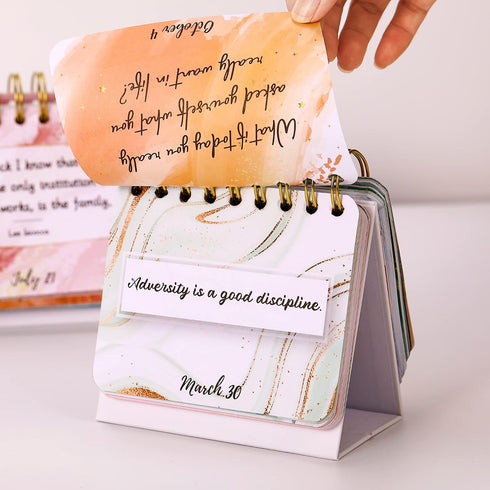 October 4
What if today you really
asked yourself what you
really want in life?
k I know tha
e only institution
works, is the family.
Lee Iacocca
July 21
Adversity is a good discipline.
March 30